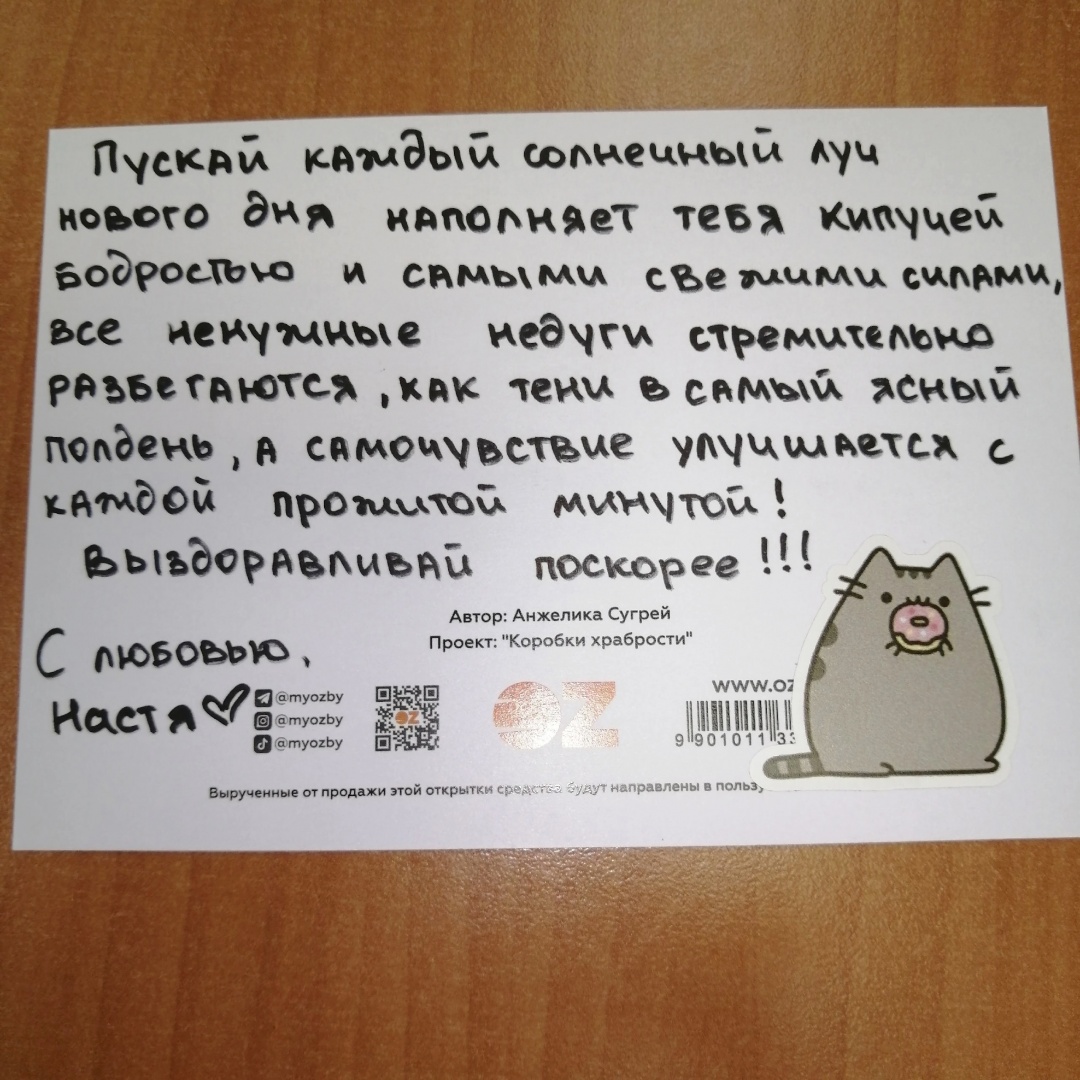 Пускай каждый солнечный луч
нового дня наполняет тебя кипучей
бодростью и самыми свежими силами,
все ненужные недуги стремительно
разбегаются, как тени в самый ясный
полдень, а самочувствие улучшается с
каждой прожитой минутой!
Выздоравливай поскорее!!!
Автор: Анжелика Сугрей
Проект: "Коробки храбрости"
С любовью,
Настя
@myozby
@myozby
@myozby
OZ
OZ
www.oz
9 901011 33
Вырученные от продажи этой открытки средства будут направлены в пользу